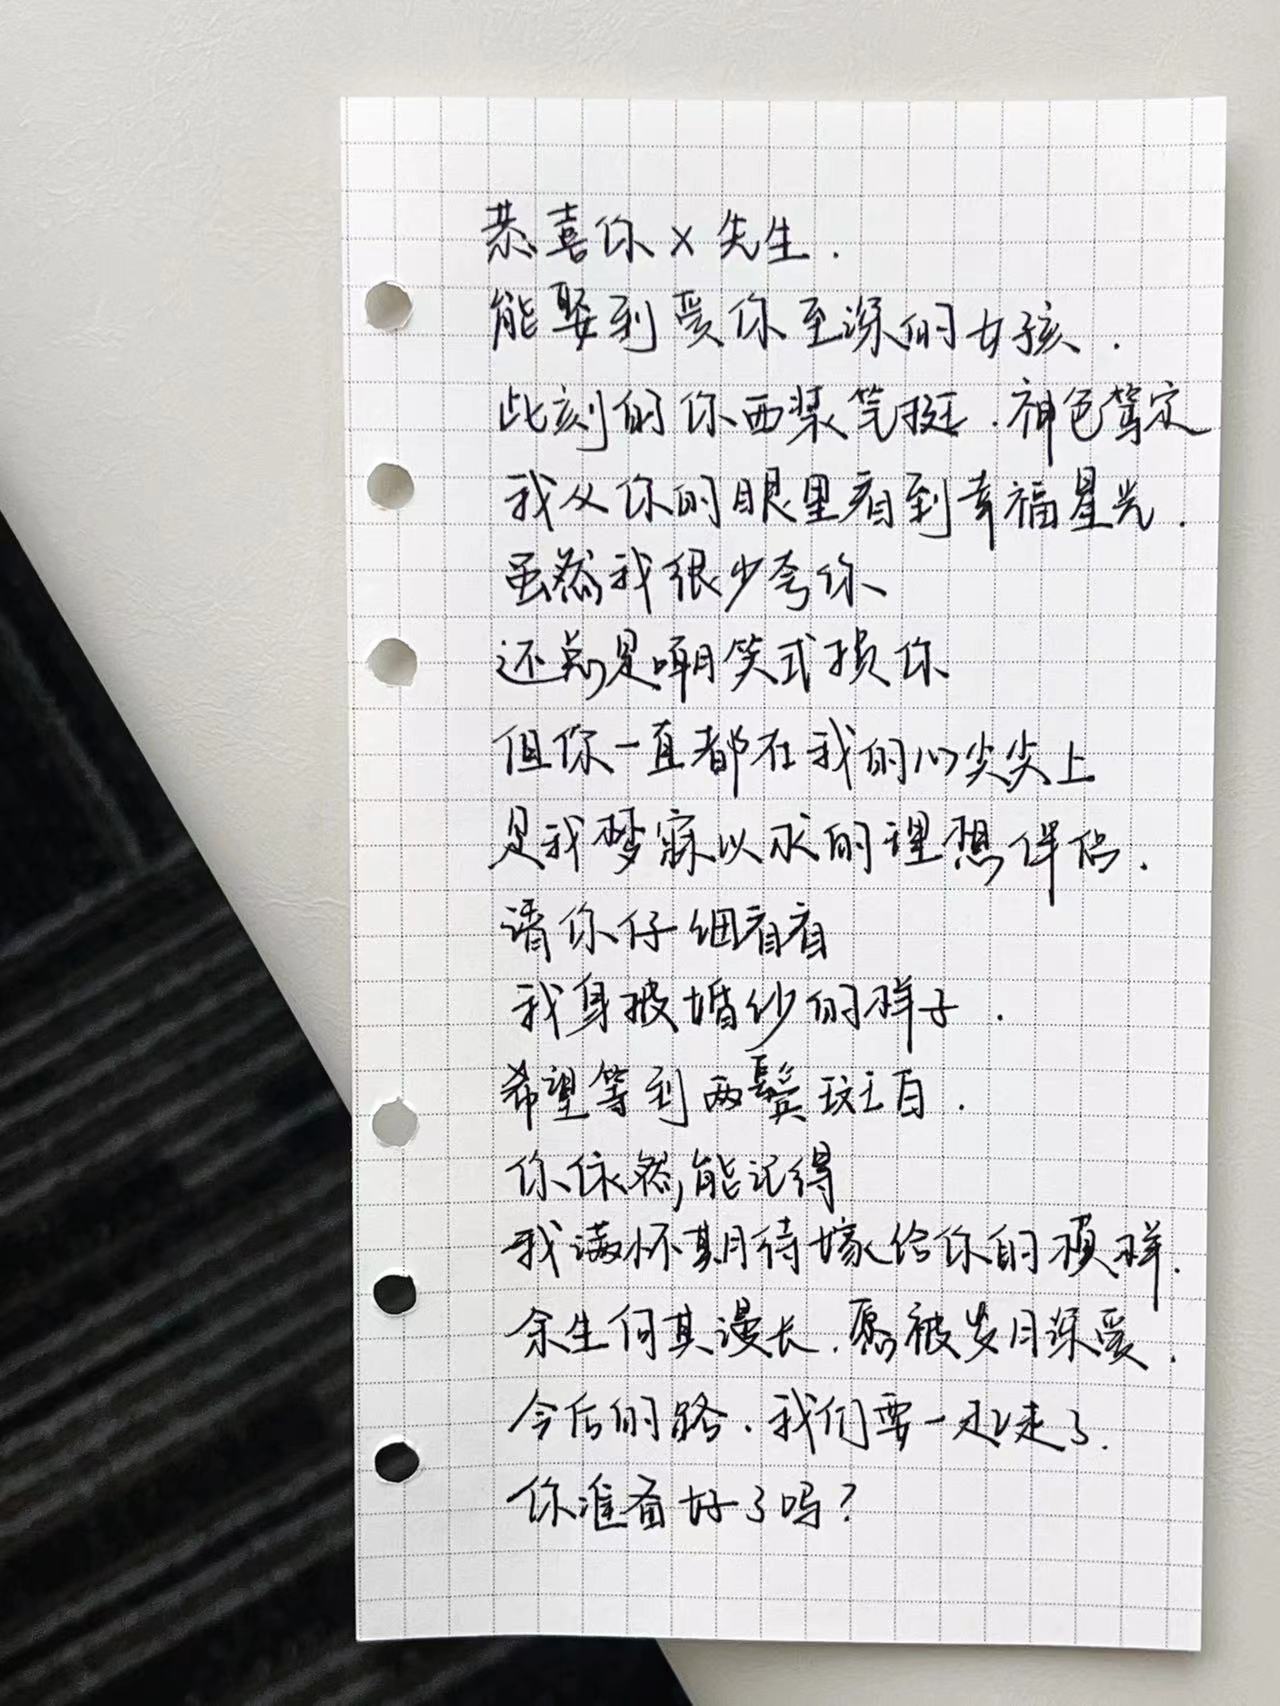 恭喜你X先生.
能娶到爱你至深的女孩.
此刻的你西装笔挺.神色笃定
我从你的眼里看到幸福星光.
虽然我很少夸你
还总是嘲笑式损你
但你一直都在我的心尖尖上
是我梦寐以求的理想伴侣.
请你仔细看看
我身披婚纱的样子.
希望等到两鬓斑白.
你依然能记得
我满怀期待嫁给你的模样.
余生何其漫长.愿被岁月深爱.
今后的路.我们要一起走了.
你准备好了吗?